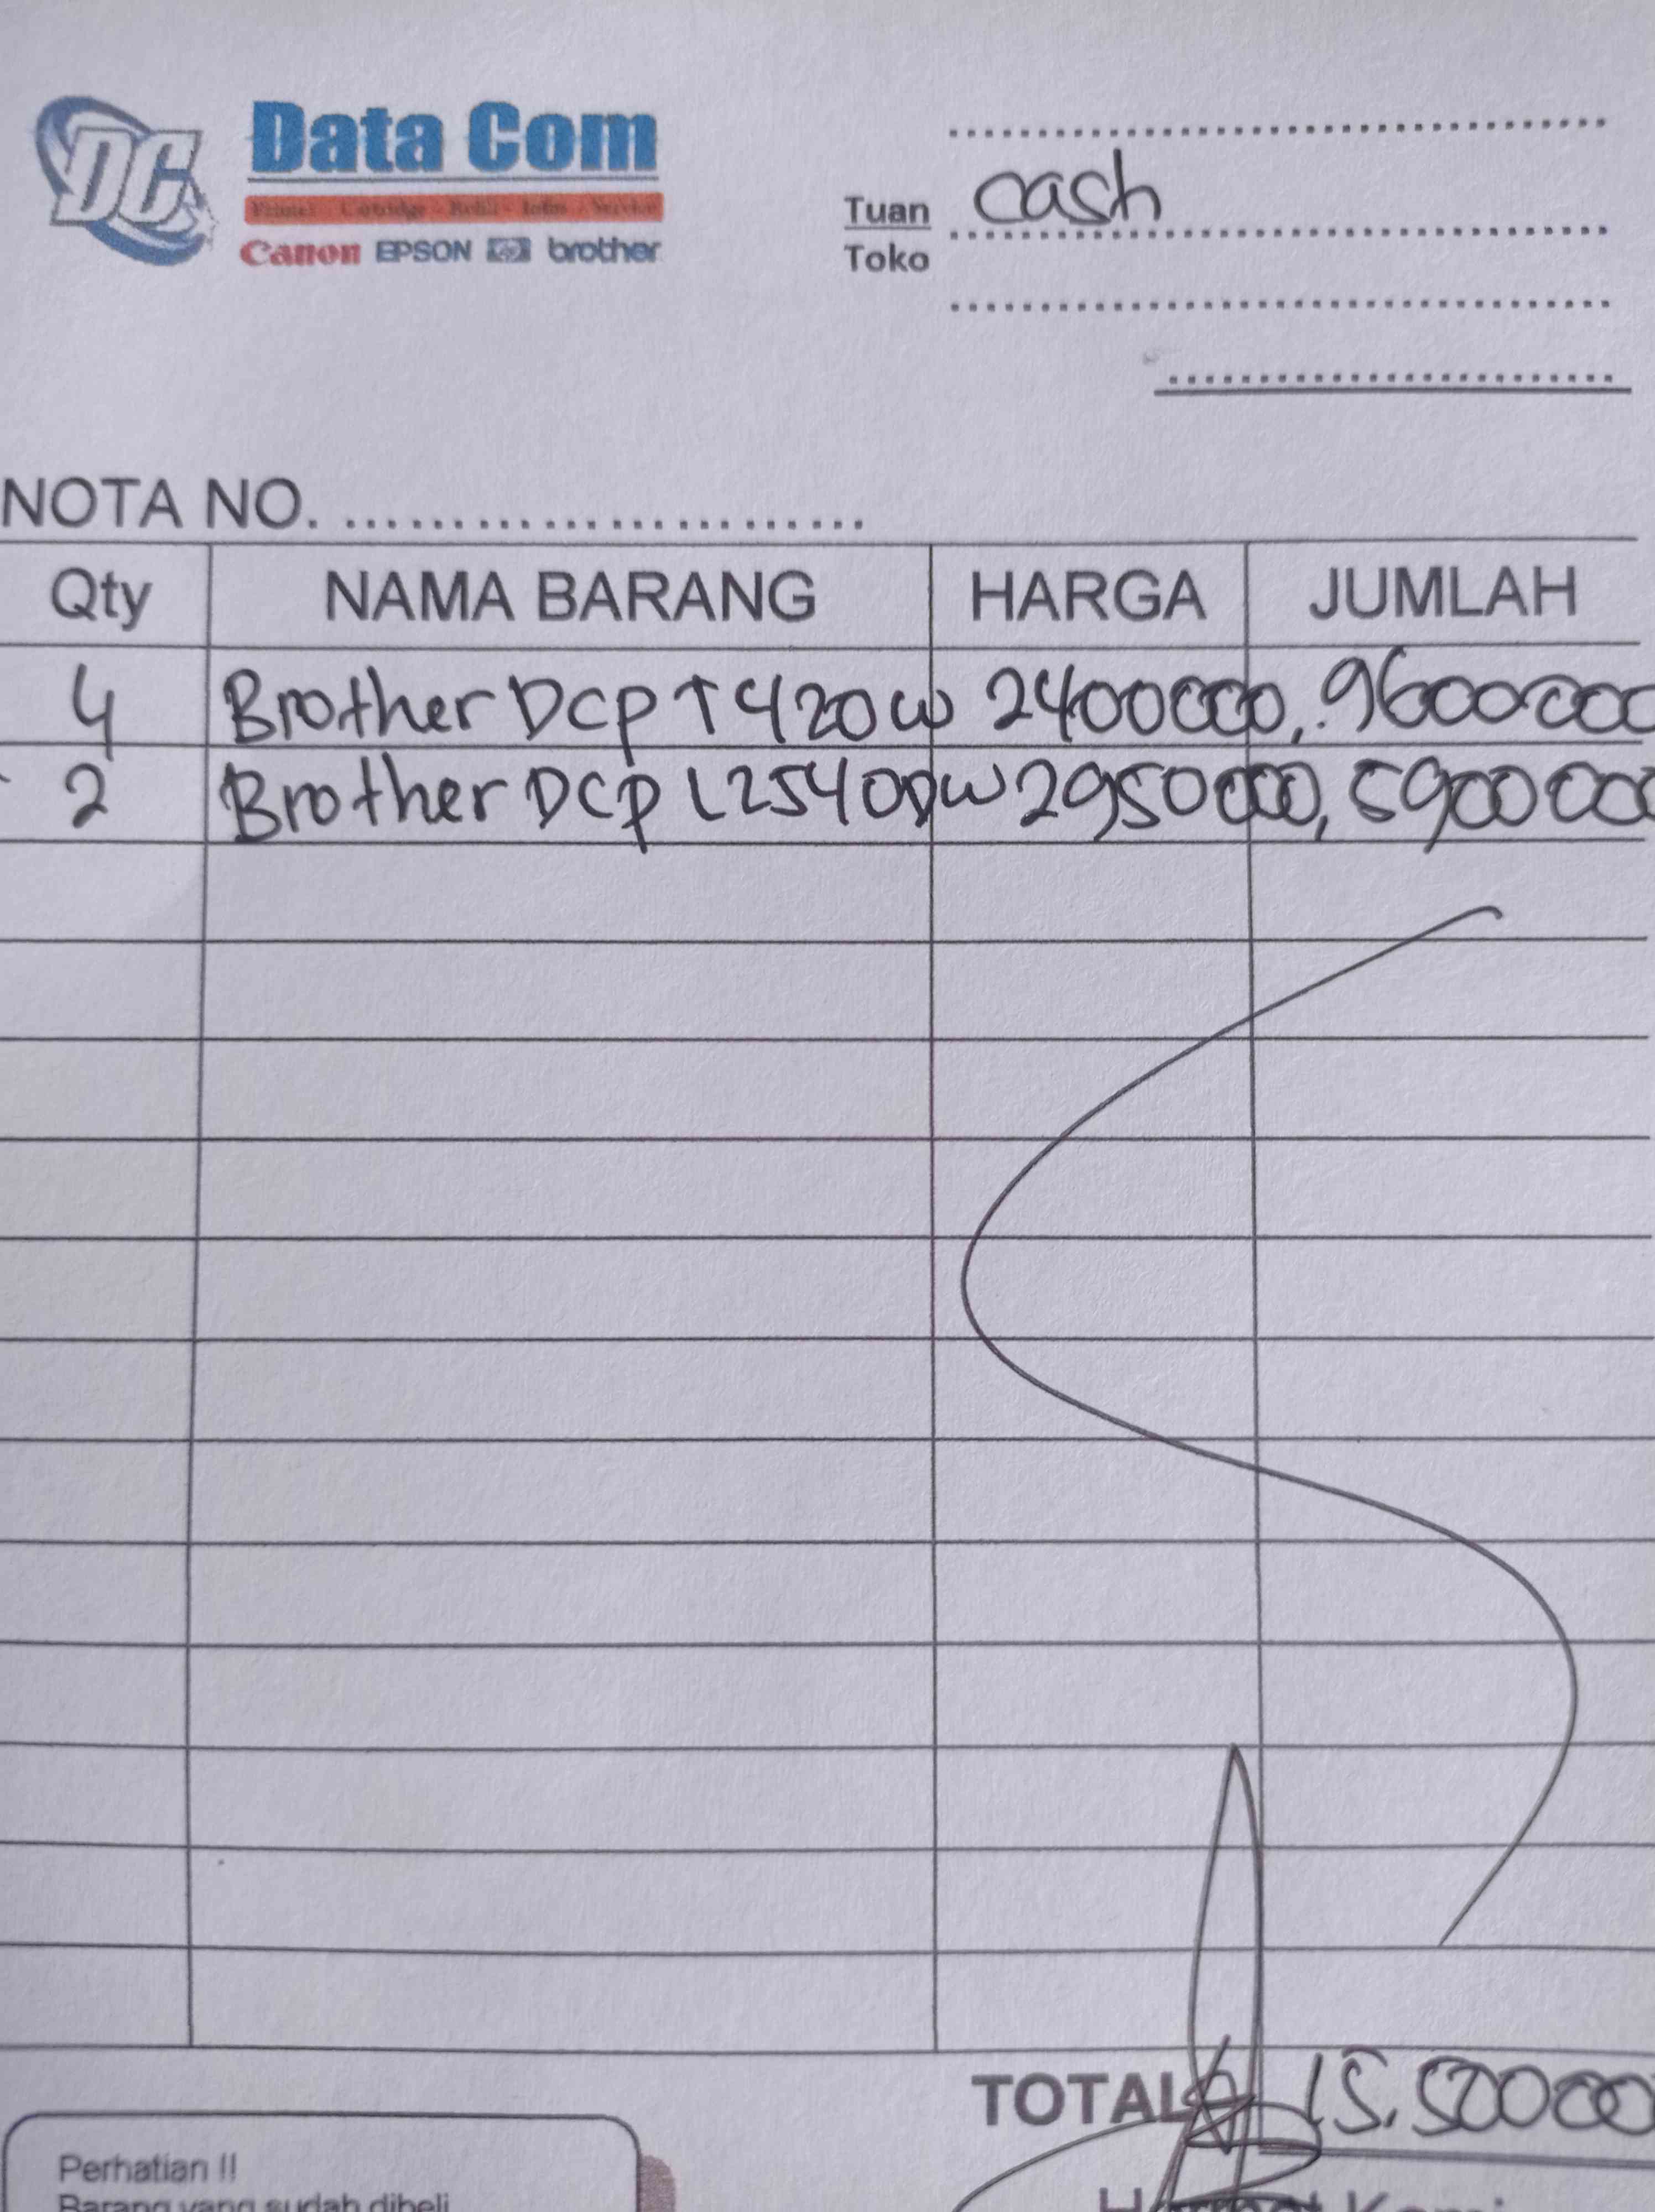 DC
Data Com
Printer - Cartridge - Refill - Infus - Service
Canon EPSON hp brother
Tuan cash
Toko
NOTA NO.
Qty NAMA BARANG HARGA JUMLAH
4 Brother Dcp T420w 2400000,. 9600000
2 Brother Dcp L2540DW 2950000, 5900000
TOTAL 15.500000
Perhatian !!
Barang yang sudah dibeli
Hormat Kami